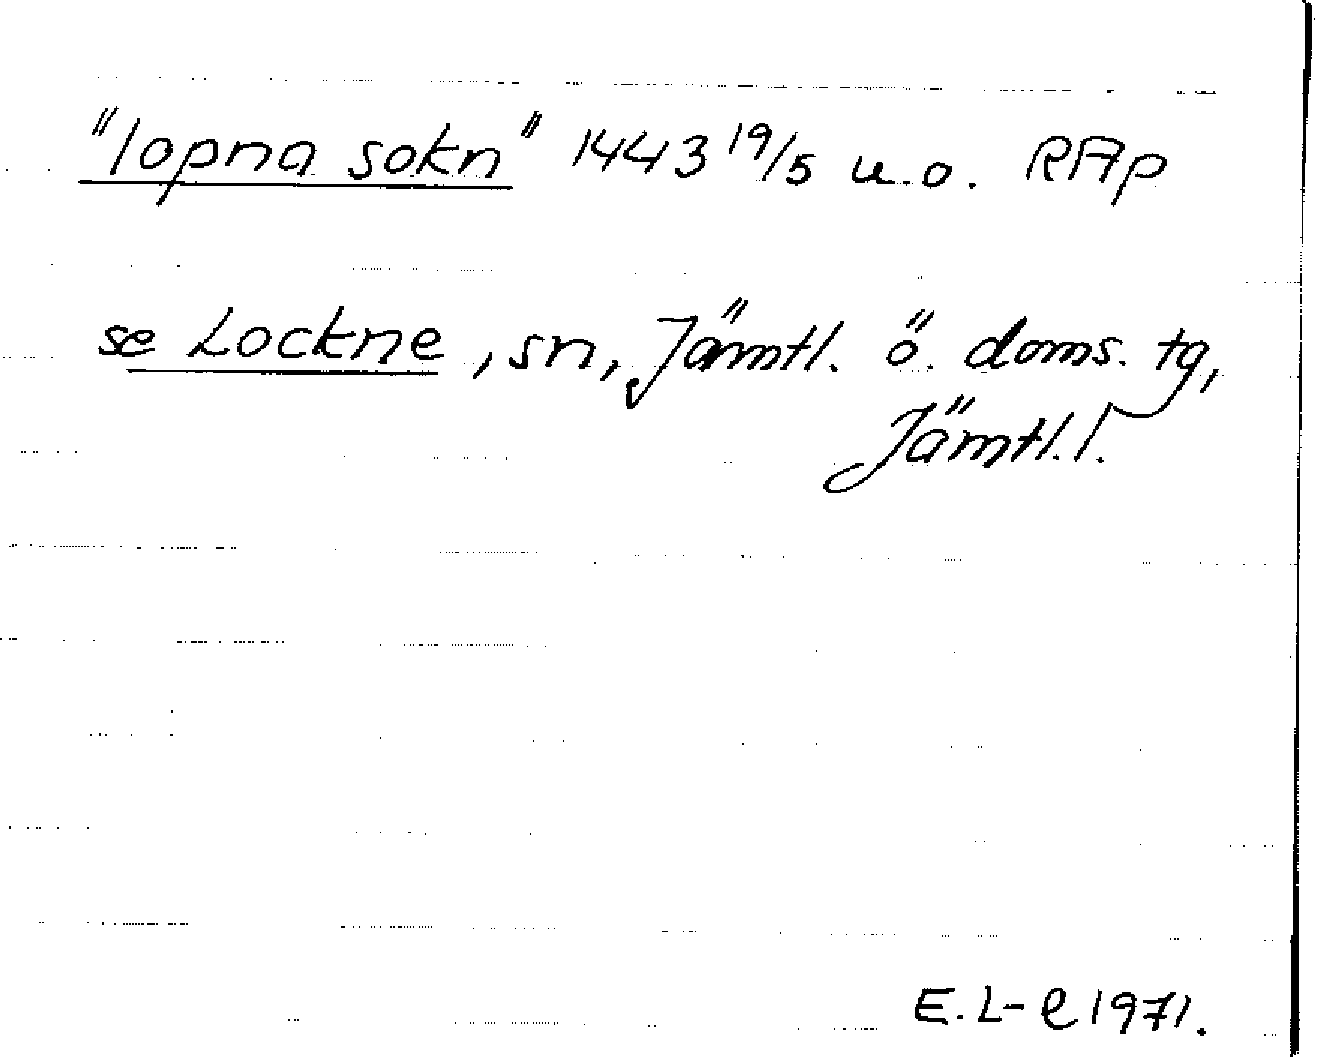 "lopna sokn" 1443 19/5 u.o. RAp
se Lockne, sn, Jämtl. ö. doms. tg,
Jämtl. l.
E. L-e 1971.